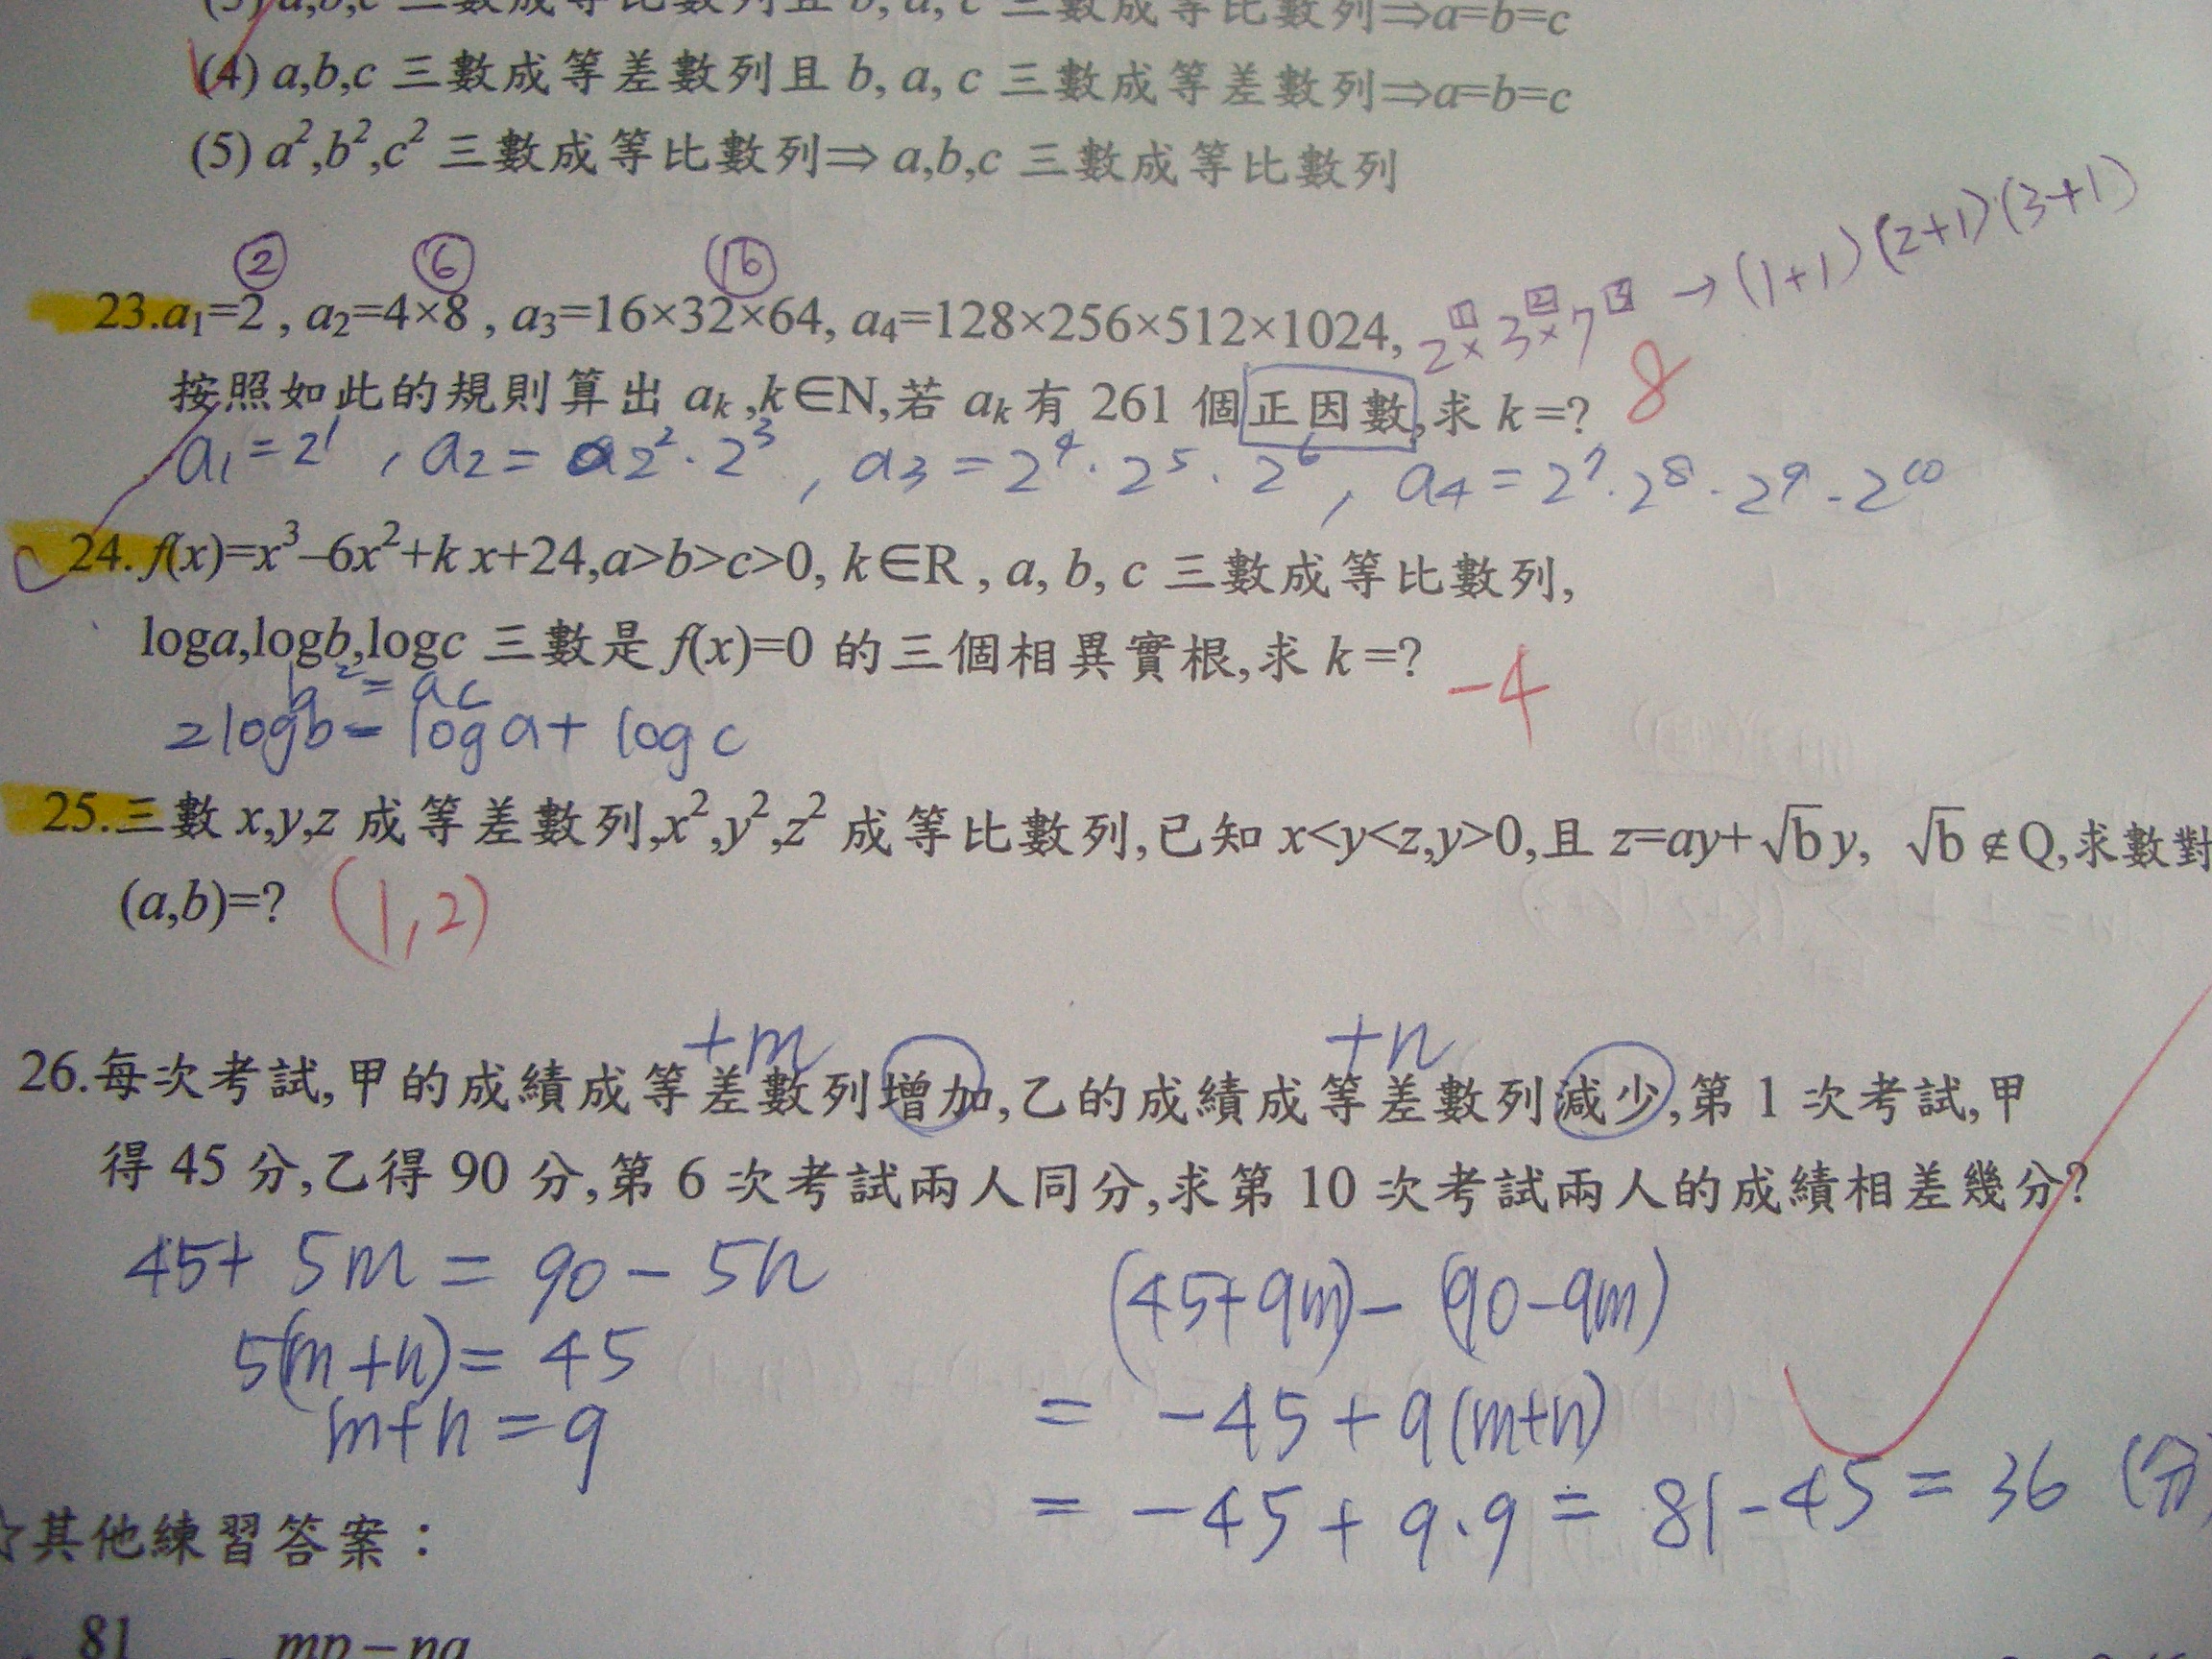 (3) a,b,c 三數成等比數列且 b, a, c 三數成等比數列⇒a=b=c
(4) a,b,c 三數成等差數列且 b, a, c 三數成等差數列⇒a=b=c
(5) a²,b²,c² 三數成等比數列⇒ a,b,c 三數成等比數列
② ⑥ ⑯
2^1×3^2×7^3 → (1+1)(2+1)(3+1)
23.a₁=2 , a₂=4×8 , a₃=16×32×64, a₄=128×256×512×1024,
按照如此的規則算出 aₖ ,k∈N,若 aₖ 有 261 個正因數,求 k =? 8
a₁=2¹ , a₂= 2²·2³ , a₃=2⁴·2⁵·2⁶ , a₄=2⁷·2⁸·2⁹·2¹⁰
24. f(x)=x³–6x²+k x+24,a>b>c>0, k∈R , a, b, c 三數成等比數列,
loga,logb,logc 三數是 f(x)=0 的三個相異實根,求 k =? -4
b²=ac
2logb=loga+logc
25.三數 x,y,z 成等差數列,x²,y²,z² 成等比數列,已知 x<y<z,y>0,且 z=ay+√b y, √b∉Q,求數對
(a,b)=? (1,2)
+m +n
26.每次考試,甲的成績成等差數列增加,乙的成績成等差數列減少,第 1 次考試,甲
得 45 分,乙得 90 分,第 6 次考試兩人同分,求第 10 次考試兩人的成績相差幾分?
45+5m=90-5n
5(m+n)=45
m+n=9
(45+9m)-(90-9m)
= -45+9(m+n)
= -45+9·9=81-45=36 (分)
☆其他練習答案：
81 mp–nq